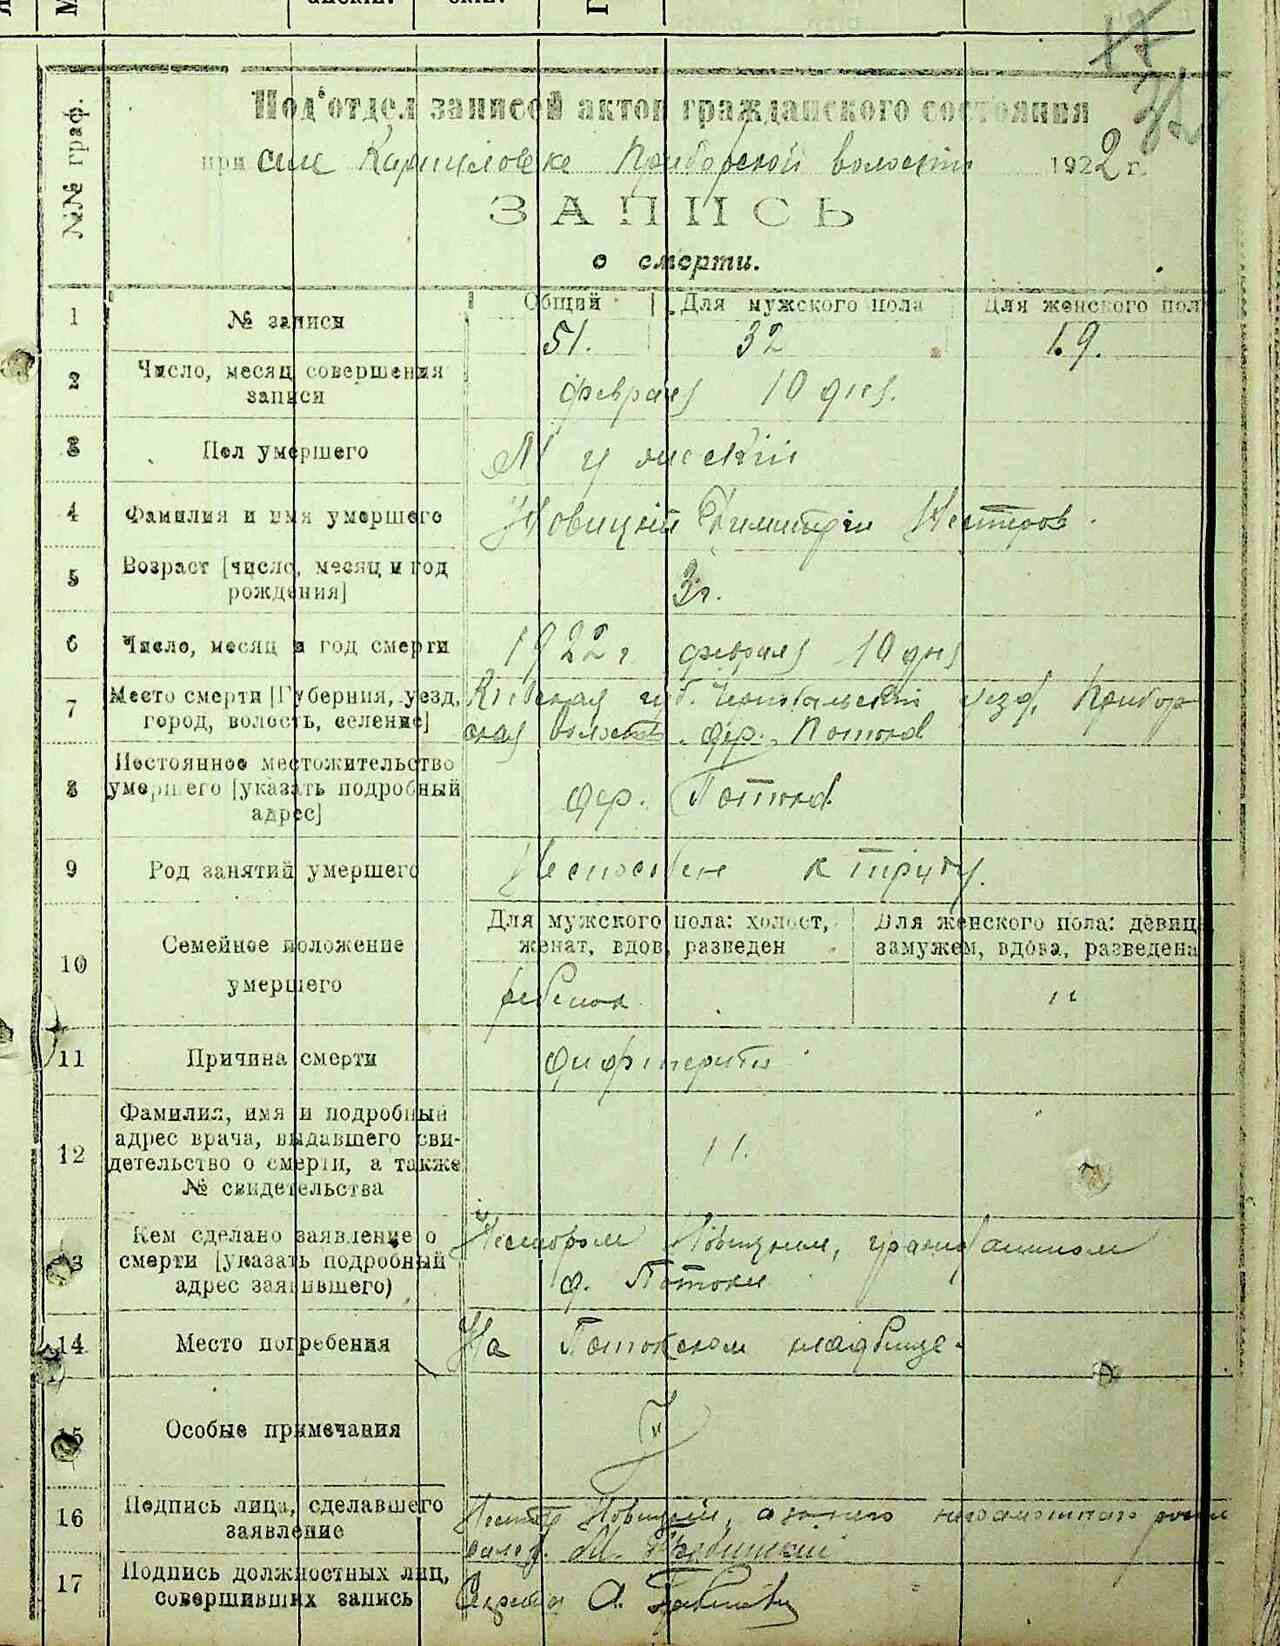 17
32
Под'отдел записей актов гражданского состояния
при селе Карпиловке Приборской волости 1922 г.
ЗАПИСЬ
о смерти.
№№ граф.
1 № записи Общий Для мужского пола Для женского пола
51. 32 19.
2 Число, месяц совершения записи февраля 10 дня.
3 Пол умершего Мужеский
4 Фамилия и имя умершего Новицкий Димитрий Нестеров.
5 Возраст [число, месяц и год рождения] 3 г.
6 Число, месяц и год смерти 1922 г февраля 10 дня
7 Место смерти [Губерния, уезд, город, волость, селение] Киевская губ. Чернобыльский уезд, Прибор
ская волость дер. Потоков
8 Постоянное местожительство умершего [указать подробный адрес] дер. Потоков
9 Род занятий умершего Неспособен к труду.
10 Семейное положение умершего
Для мужского пола: холост, женат, вдов, разведен
Для женского пола: девица, замужем, вдова, разведена
ребенок "
11 Причина смерти дифтерит
12 Фамилия, имя и подробный адрес врача, выдавшего свидетельство о смерти, а также № свидетельства "
13 Кем сделано заявление о смерти [указать подробный адрес заявившего) Нестором Новицким, гражданином
д. Потоки
14 Место погребения На Потокском кладбище.
15 Особые примечания "
16 Подпись лица, сделавшего заявление Нестор Новицкий, а за него неграмотного
17 Подпись должностных лиц, совершивших запись А.